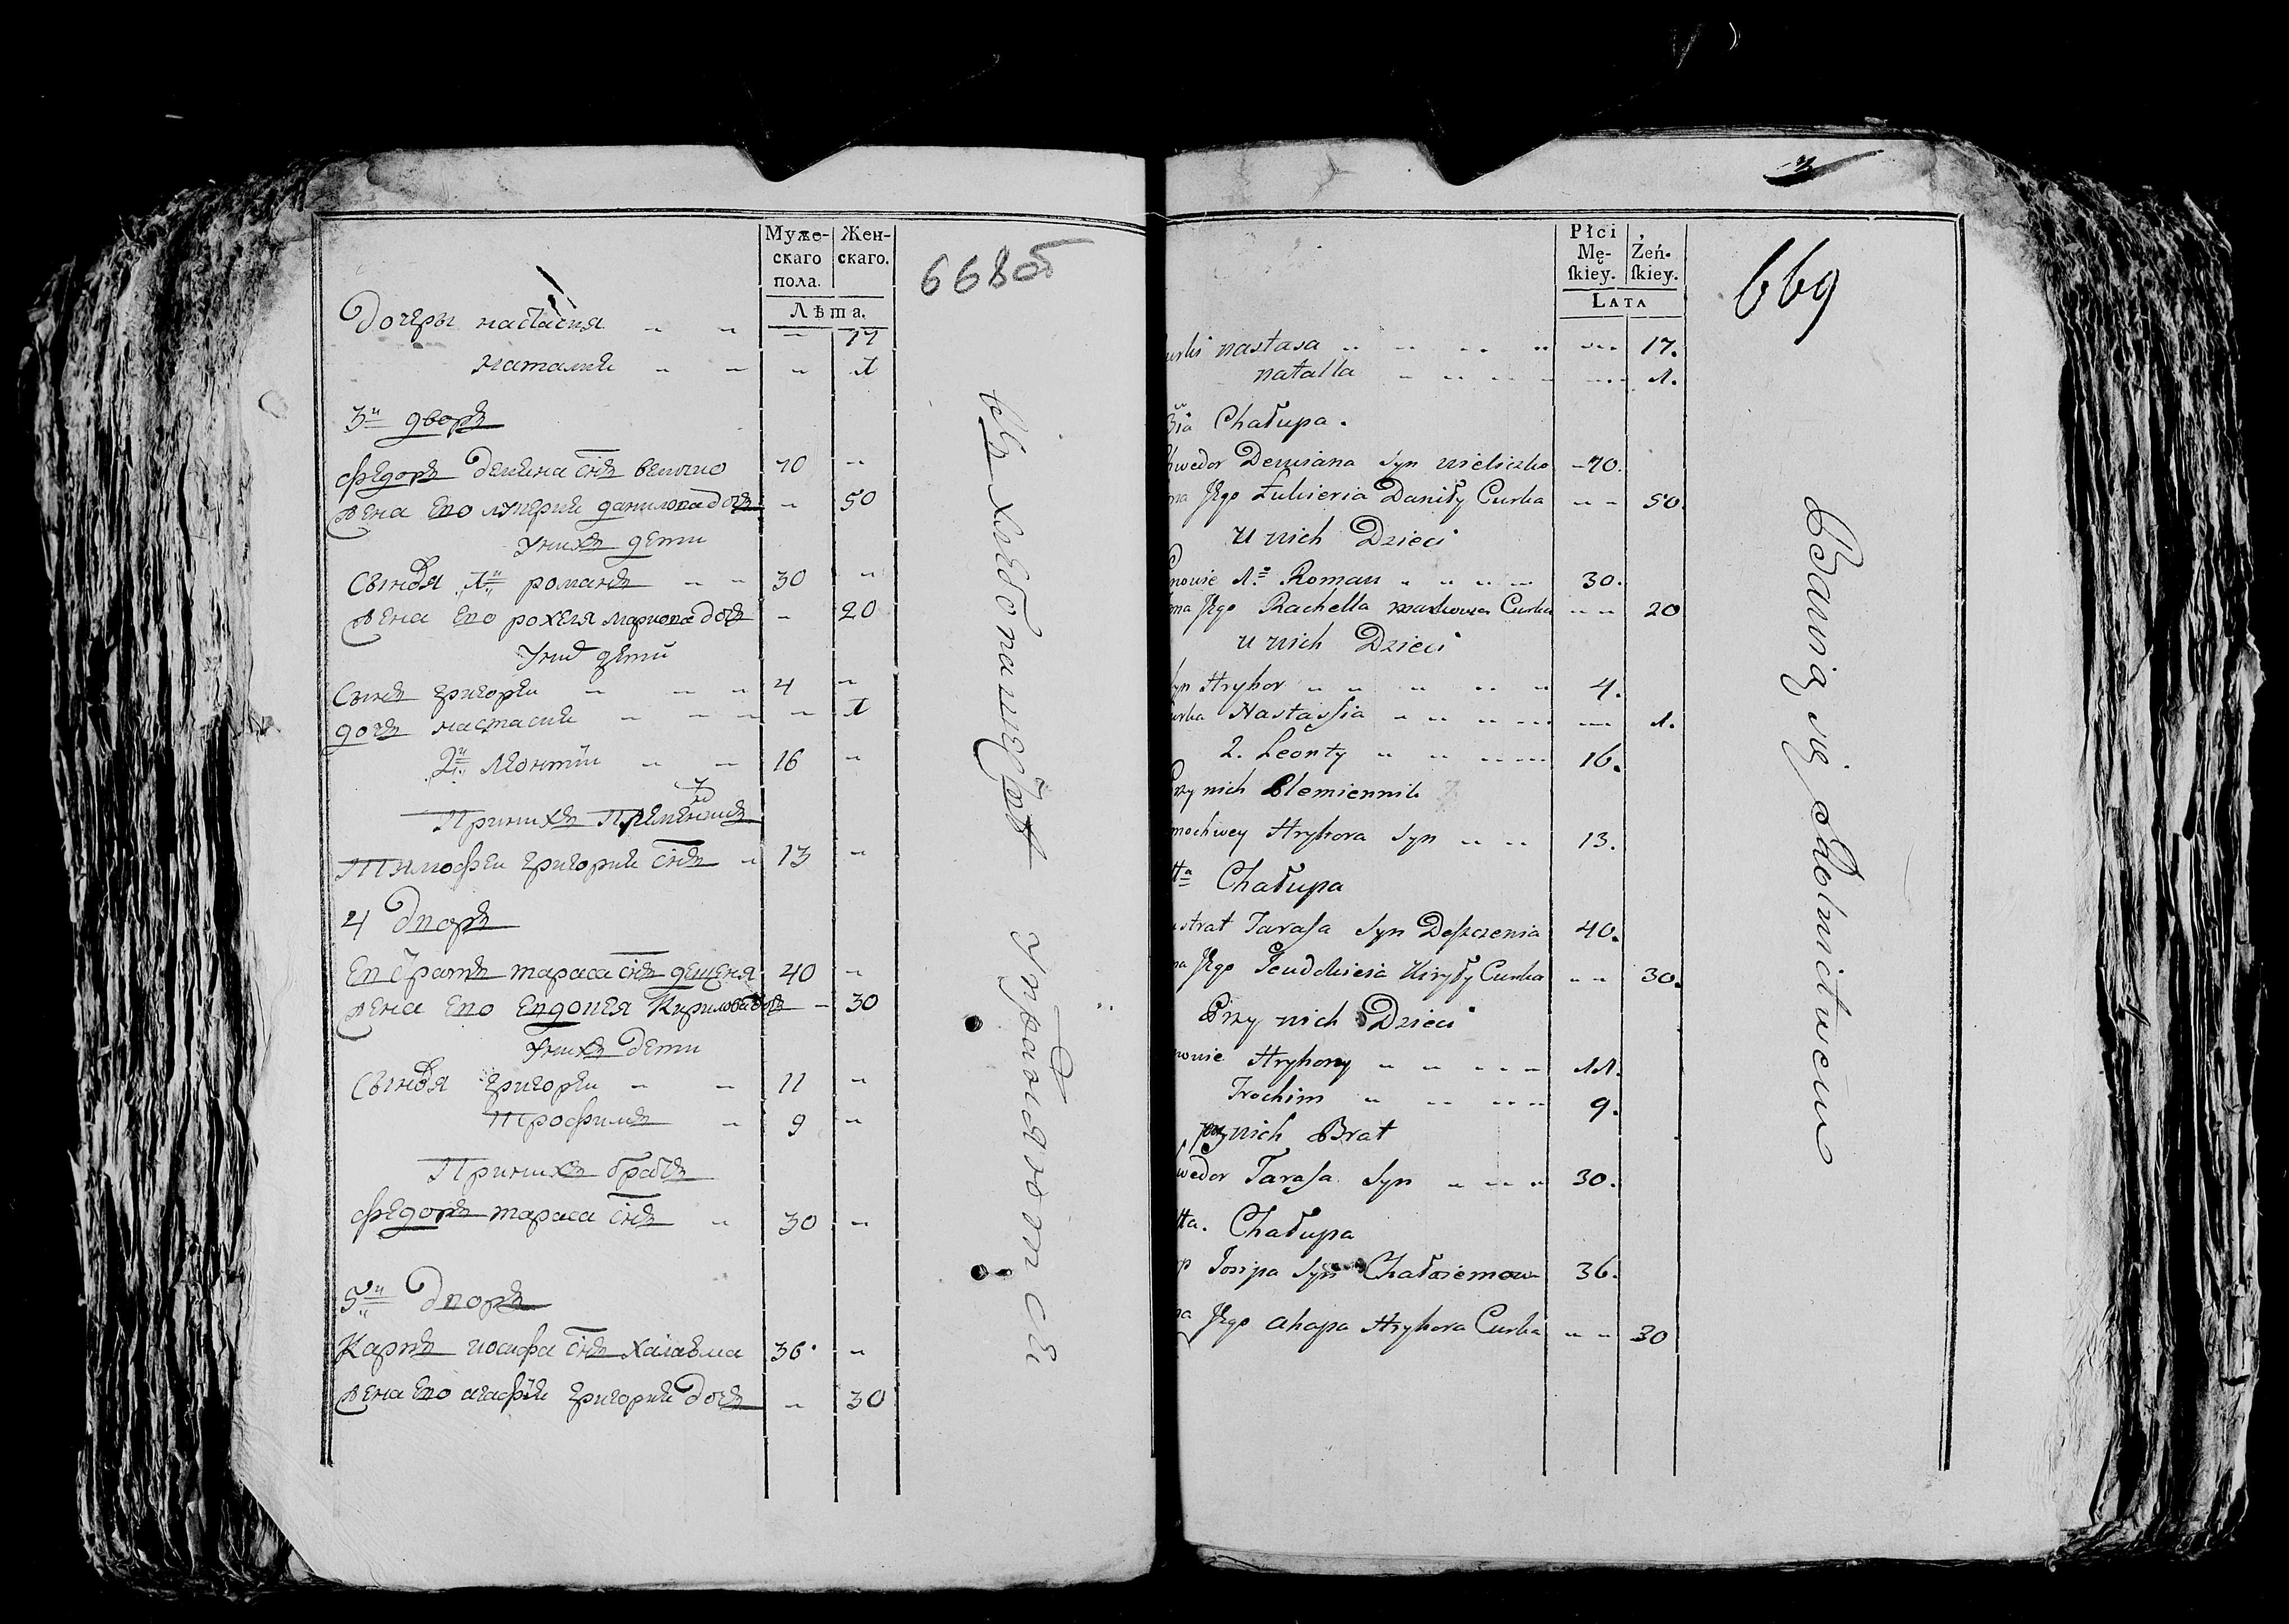 668об
Муже-
скаго
пола.
Жен-
скаго.
Лѣта.
Дочеры настасия " " – 17
Наталия " " " 1
3й дворъ
Федоръ Демяна снъ величко 70 "
Жена Его лукерия данилова дочь " 50
У нихъ дети
Сыновья 1й романъ " " 30 "
Жена Его рохеля маркова дочь " 20
У них дети
Сынъ григорей " " " 4 "
дочь настасия " " " " 1
2й леонтий " " 16 "
При нихъ Племенникъ
Тимофеи григория снъ " 13 "
4 Дворъ
Евстратъ тараса снъ дещеня 40 "
Жена Его Евдокея Кирилова дочь – 30
У нихъ дети
Сыновья григореи " " 11 "
Трофимъ " 9 "
При нихъ братъ
Федоръ тараса снъ " 30 "
5й Дворъ
Карпъ иосифа снъ халаема 36. "
Жена Его агафия григория дочь " 30
въ хлебопашестве упражняются
669
Płci
Mę-
ſkiey.
Żeń-
ſkiey.
LATA
urki nastasa " " " " " 17.
natalla " " " " " 1.
3ia Chałupa.
hwedor Demiana Syn wieliczko – 70.
na Jego Łukieria Daniły Curka " " 50.
u nich Dzieci
nowie 1o Roman " " " " 30.
na Jego Rachella markowa Curka " " 20
u nich Dzieci
yn Hryhor " " " " " 4.
urka Nastaſsia " " " " " 1.
2. Leonty " " " " 16.
rzy nich Plemiennik
mochwey Hryhora Syn " " " 13.
4ta Chałupa
wstrat Taraſa Syn Deſzczenia 40.
na Jego Jeudokieia Kiryły Curka " " 30.
Przy nich Dzieci
nowie Hryhory " " " " 11.
Trochim " " " " 9.
przy nich Brat
wedor Taraſa Syn " " " 30.
ta. Chałupa
p Josipa Syn Chałaiemow 36.
na Jego ahapa Hryhora Curka " " 30
Bawią się Rolnictwem